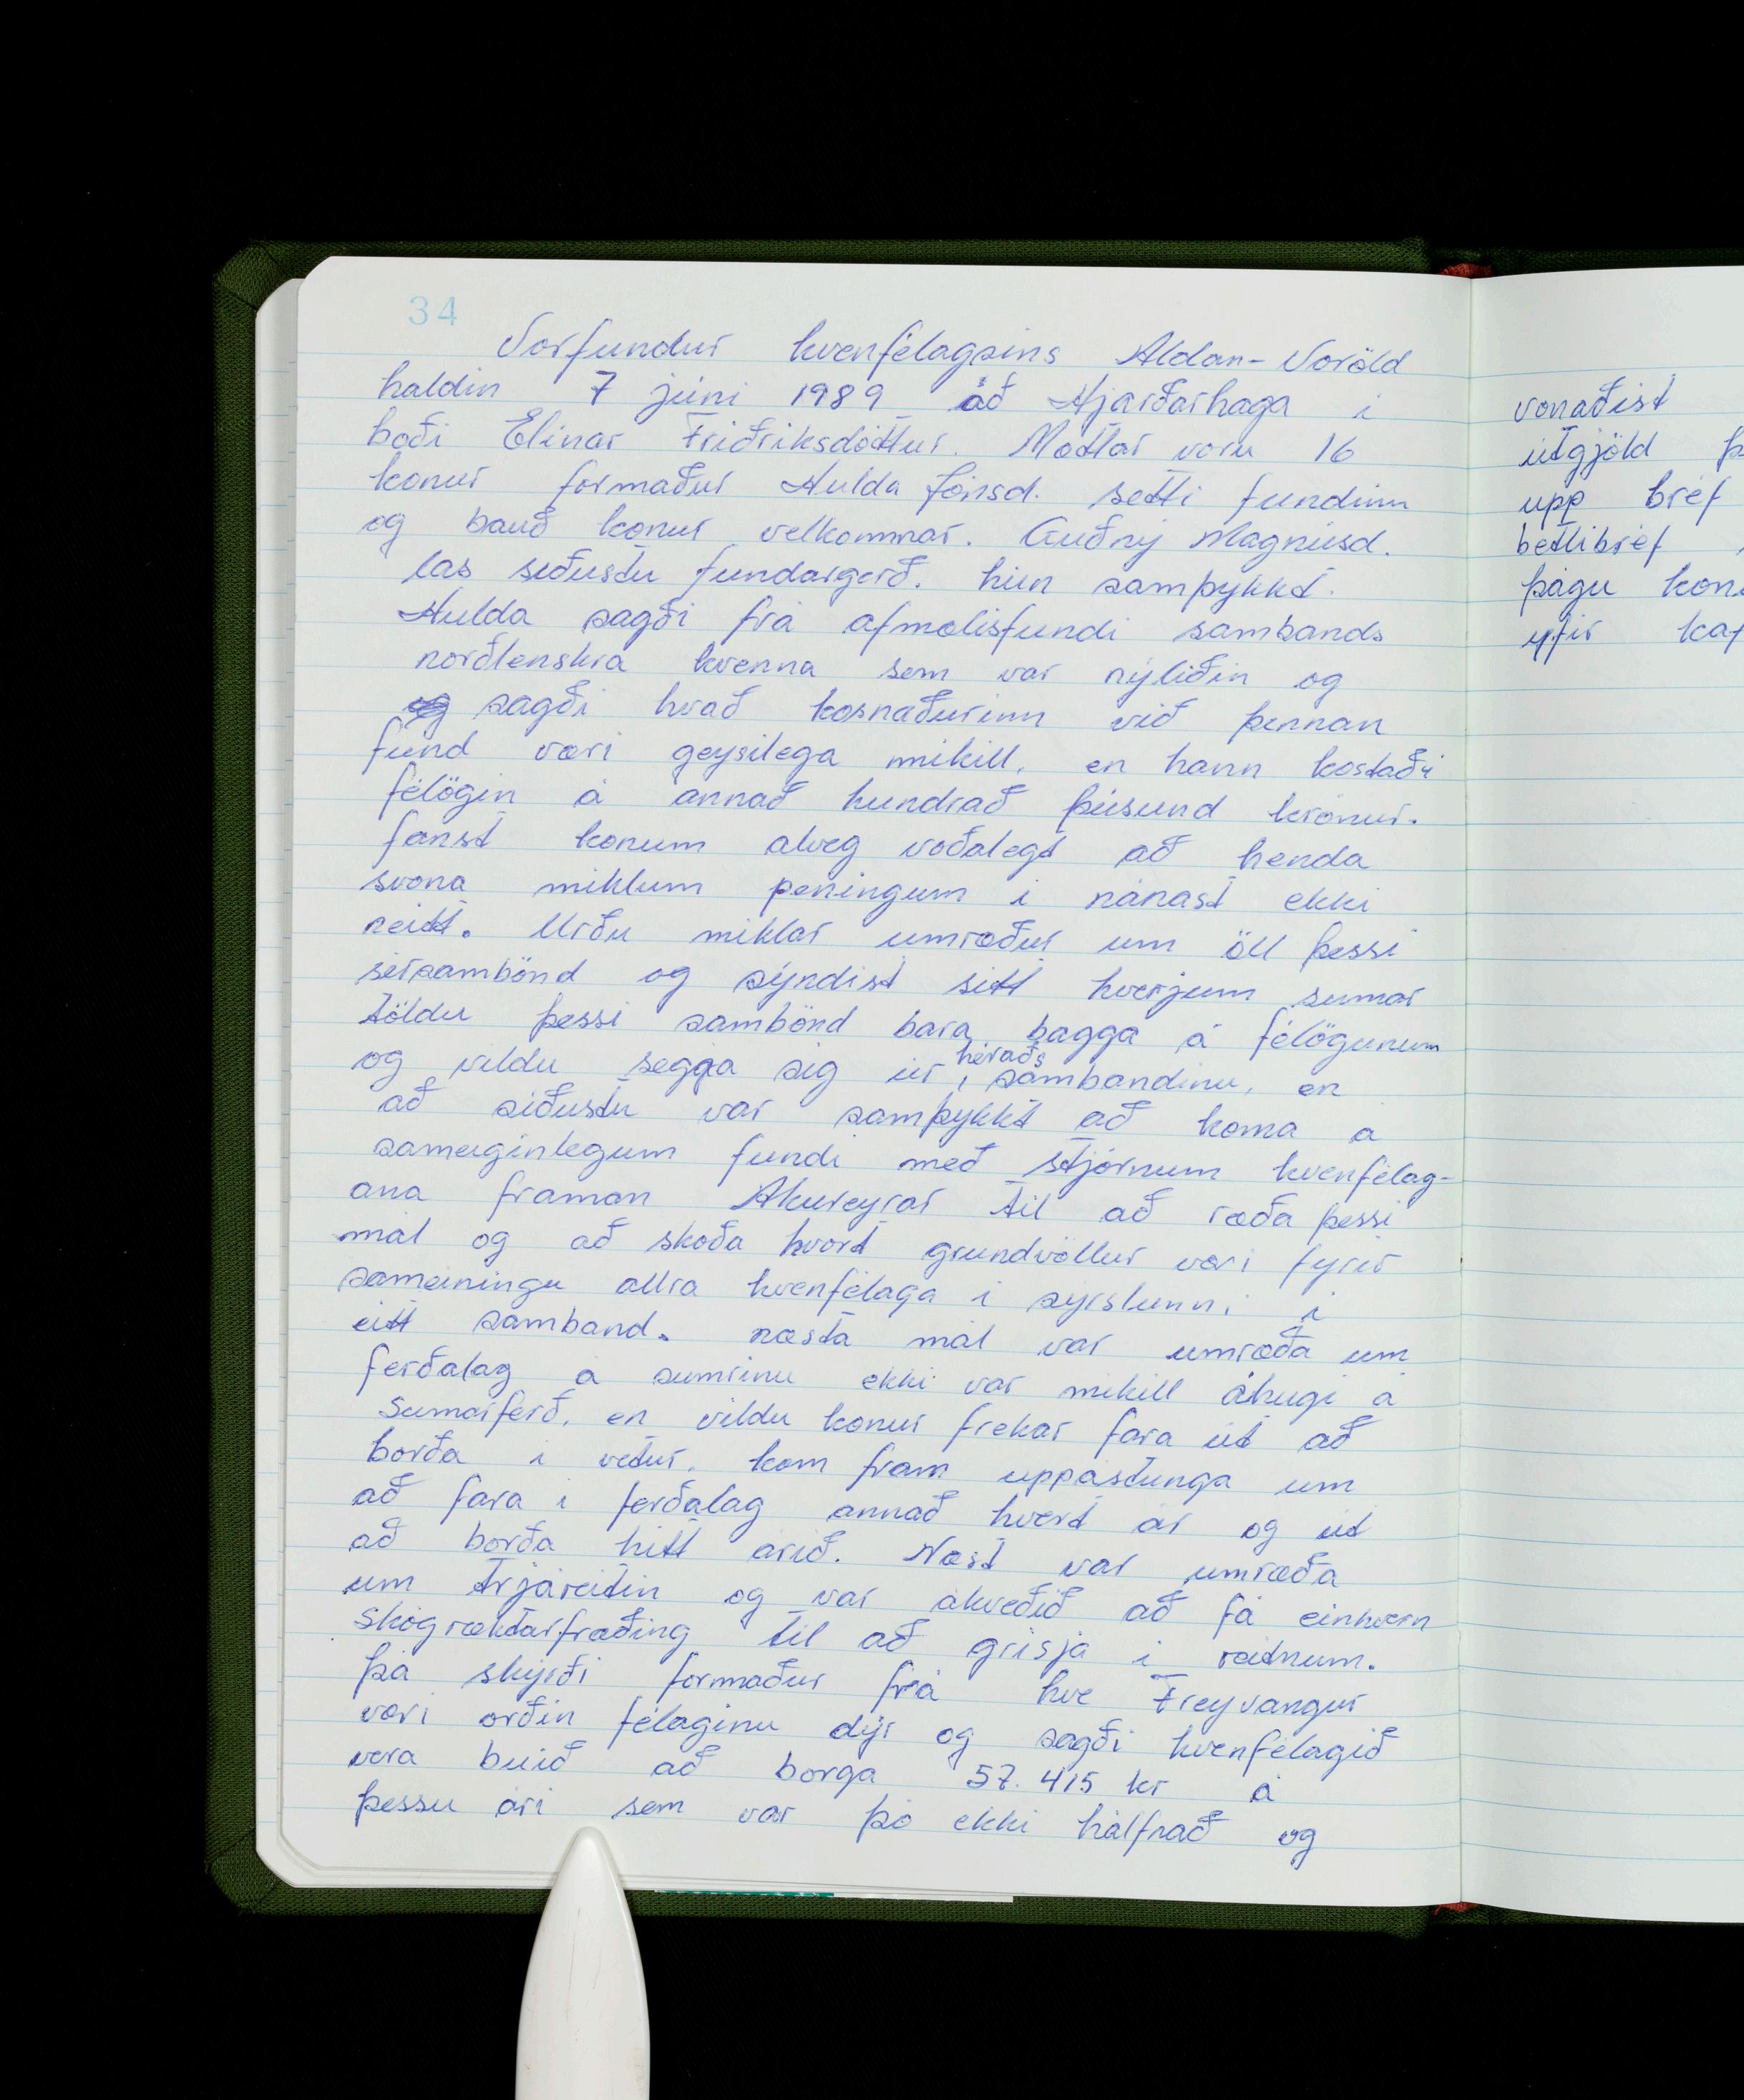 34
Vorfundur kvenfélagsins Aldan-Voröld
haldin 7 júni 1989 að Hjarðarhaga i
boði Elinar Friðriksdóttur. Mættar voru 16
konur formaður Hulda Jónsd. setti fundinn
og bauð konur velkomnar. Guðný Magnúsd.
las siðustu fundargerð. hún samþykkt.
Hulda sagði frá afmælisfundi sambands
norðlenskra kvenna sem var nýliðin og
og sagði hvað kosnaðurinn við þennan
fund væri geysilega mikill, en hann kostaði
félögin á annað hundrað þúsund krónur.
fanst konum alveg voðalegt að henda
svona miklum peningum i nánast ekki
neitt. Urðu miklar umræður um öll þessi
sérsambönd og sýndist sitt hverjum sumar
töldu þessi sambönd bara bagga á félögunum
og vildu segja sig úr héraðs sambandinu, en
að siðustu var samþykkt að koma a
sameiginlegum fundi með stjórnum kvenfélag-
ana framan Akureyrar til að ræða þessi
mál og að skoða hvort grundvöllur væri fyrir
sameiningu allra kvenfélaga i sýrslunni i
eitt samband. næsta mál var umræða um
ferðalag á sumrinu ekki var mikill áhugi á
Sumarferð, en vildu konur frekar fara út að
borða i vetur. kom fram uppástunga um
að fara i ferðalag annað hvert ár og út
að borða hitt árið. Næst var umræða
um trjáreitin og var ákveðið að fá einhvern
skógræktarfræðing til að grisja i reitnum.
þá skýrði formaður frá hve Freyvangur
væri orðin félaginu dýr og sagði kvenfélagið
vera búið að borga 57.415 kr á
þessu ári sem var þó ekki hálfnað og
vonaðist
útgjöld
upp bréf
betlibréf
þágu
yfir